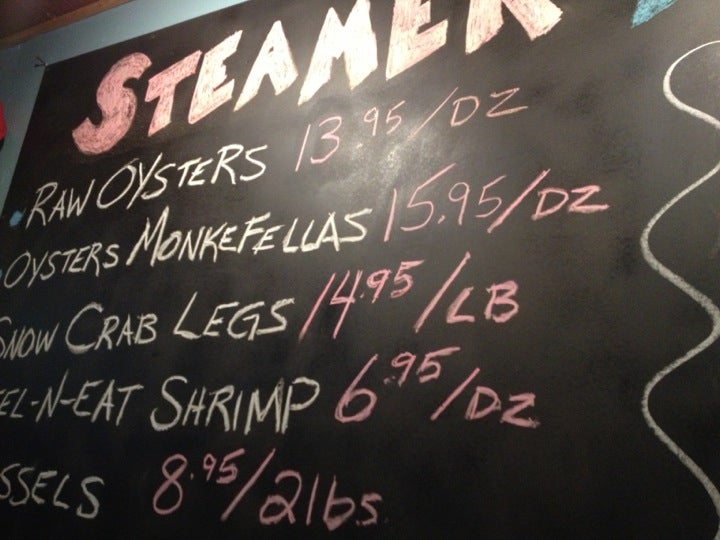 STEAMER
RAW OYSTERS 13.95/DZ
OYSTERS MONKEFELLAS 15.95/DZ
SNOW CRAB LEGS 14.95/LB
EL-N-EAT SHRIMP 6.95/DZ
SSELS 8.95/2lbs